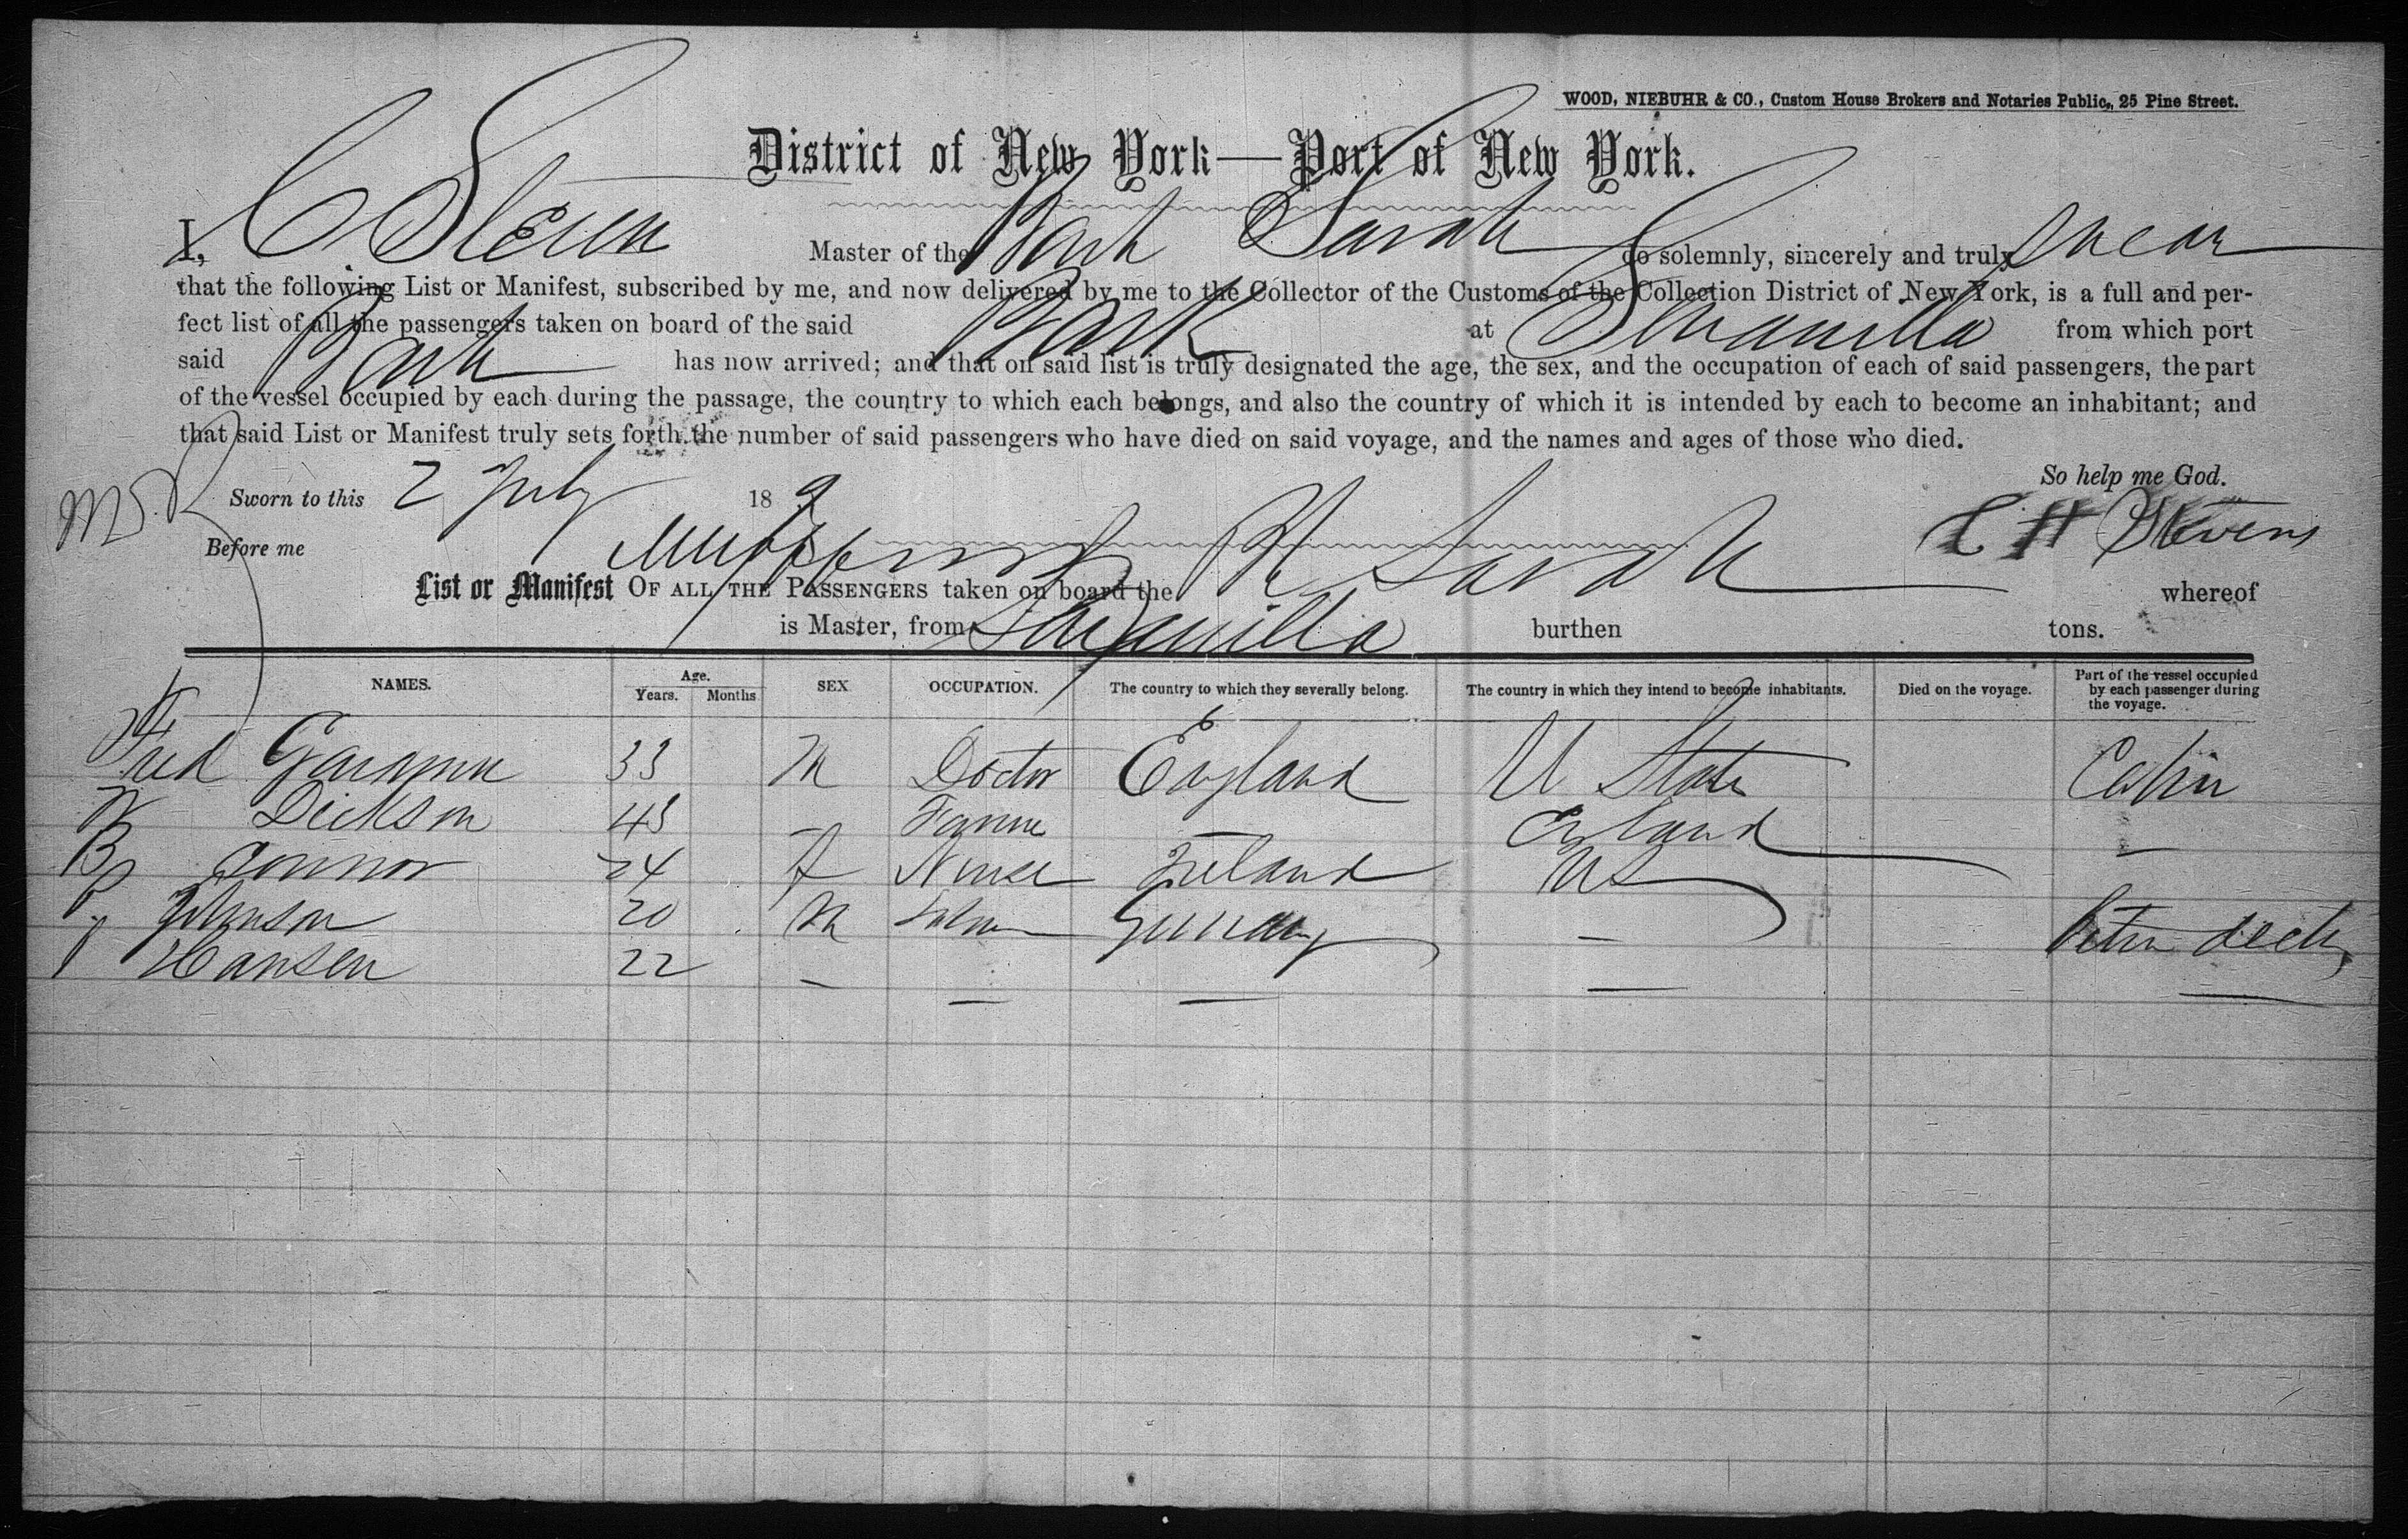 WOOD, NIEBUHR & CO., Custom House Brokers and Notaries Public, 25 Pine Street.
District of New York—Port of New York.
I, C Master of the Bark Sarah do solemnly, sincerely and truly swear
that the following List or Manifest, subscribed by me, and now delivered by me to the Collector of the Customs of the Collection District of New York, is a full and per-
fect list of all the passengers taken on board of the said Bark at from which port
said Bark has now arrived; and that on said list is truly designated the age, the sex, and the occupation of each of said passengers, the part
of the vessel occupied by each during the passage, the country to which each belongs, and also the country of which it is intended by each to become an inhabitant; and
that said List or Manifest truly sets forth the number of said passengers who have died on said voyage, and the names and ages of those who died.
So help me God.
Sworn to this 2 July 18 9
C H Stevens
Before me
List or Manifest OF ALL THE PASSENGERS taken on board the Sarah whereof
is Master, from burthen tons.
NAMES. Age. Years. Months SEX OCCUPATION. The country to which they severally belong. The country in which they intend to become inhabitants. Died on the voyage. Part of the vessel occupied by each passenger during the voyage.
Fred 33 M Doctor England U States Cabin
W Dickson 43 England –
B Connor 24 F Nurse Ireland US
P Johnson 20 M Germany – deck
J Hansen 22 – – – – –